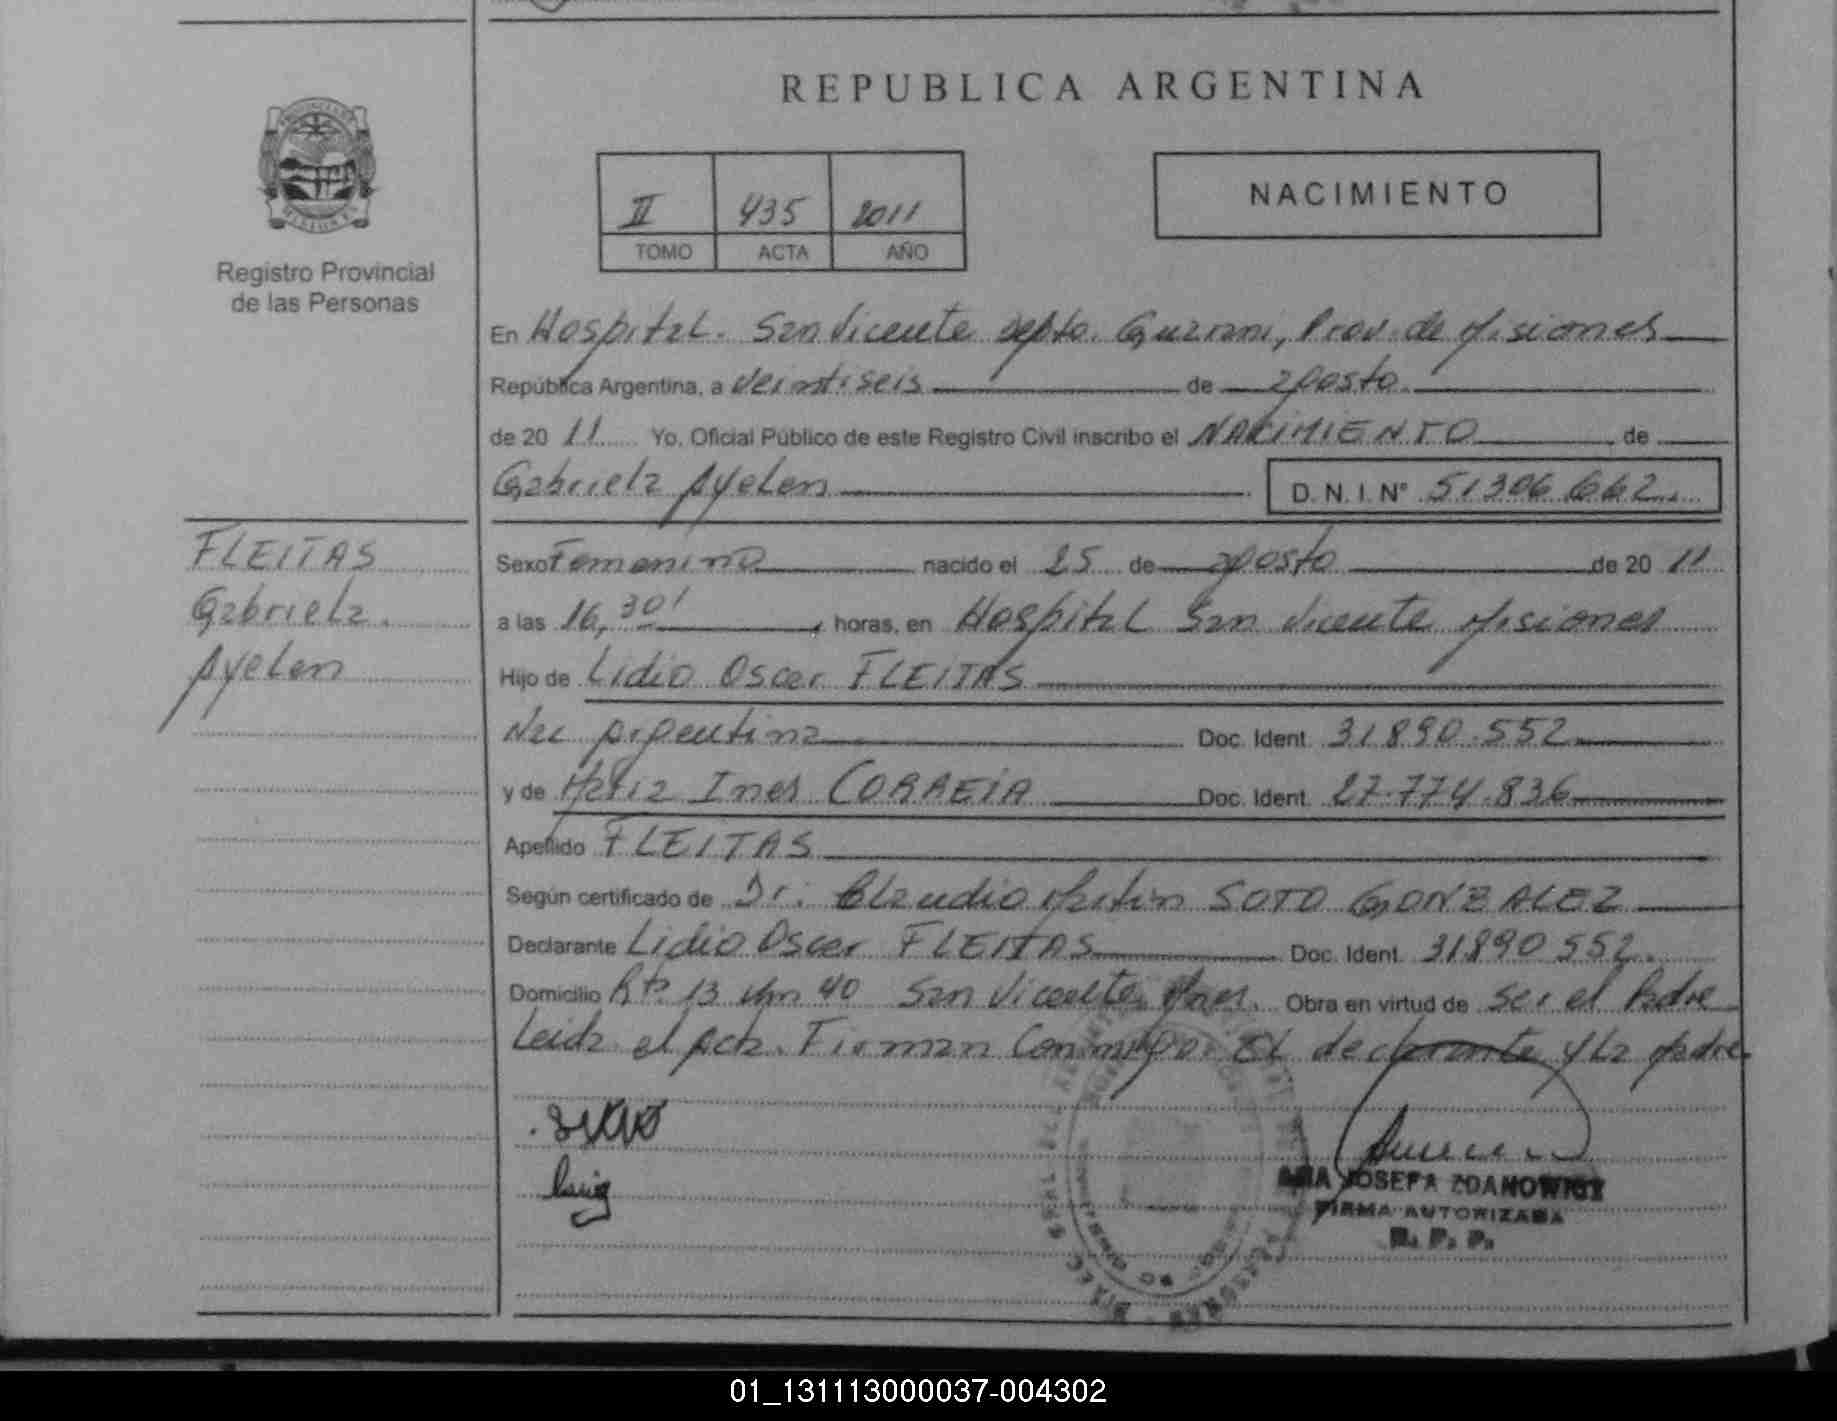 REPUBLICA ARGENTINA
II 435 2011
TOMO ACTA AÑO
NACIMIENTO
Registro Provincial
de las Personas
En Hospital. San Vicente Depto. Guarani, Prov. de Misiones
República Argentina, a veintiseis de agosto
de 20 11 Yo, Oficial Público de este Registro Civil inscribo el NACIMIENTO de
Gabriela Ayelen D.N.I. Nº 51306662
FLEITAS
Gabriela
Ayelen
Sexo Femenino nacido el 25 de agosto de 20 11
a las 16,30' horas, en Hospital San Vicente Misiones
Hijo de Lidio Oscar FLEITAS
Nac Argentina Doc. Ident. 31890.552
y de Maria Ines CORREIA Doc. Ident. 27.774.836
Apellido FLEITAS
Según certificado de Dr. Claudio Martin SOTO GONZALEZ
Declarante Lidio Oscar FLEITAS Doc. Ident. 31890552
Domicilio Rta 13 Km 40 San Vicente Mnes. Obra en virtud de ser el Padre
Leida el Acta. Firman Conmigo. EL declarante y La Madre.
ANA JOSEFA ZDANOWICZ
FIRMA AUTORIZADA
R. P. P.
01_131113000037-004302